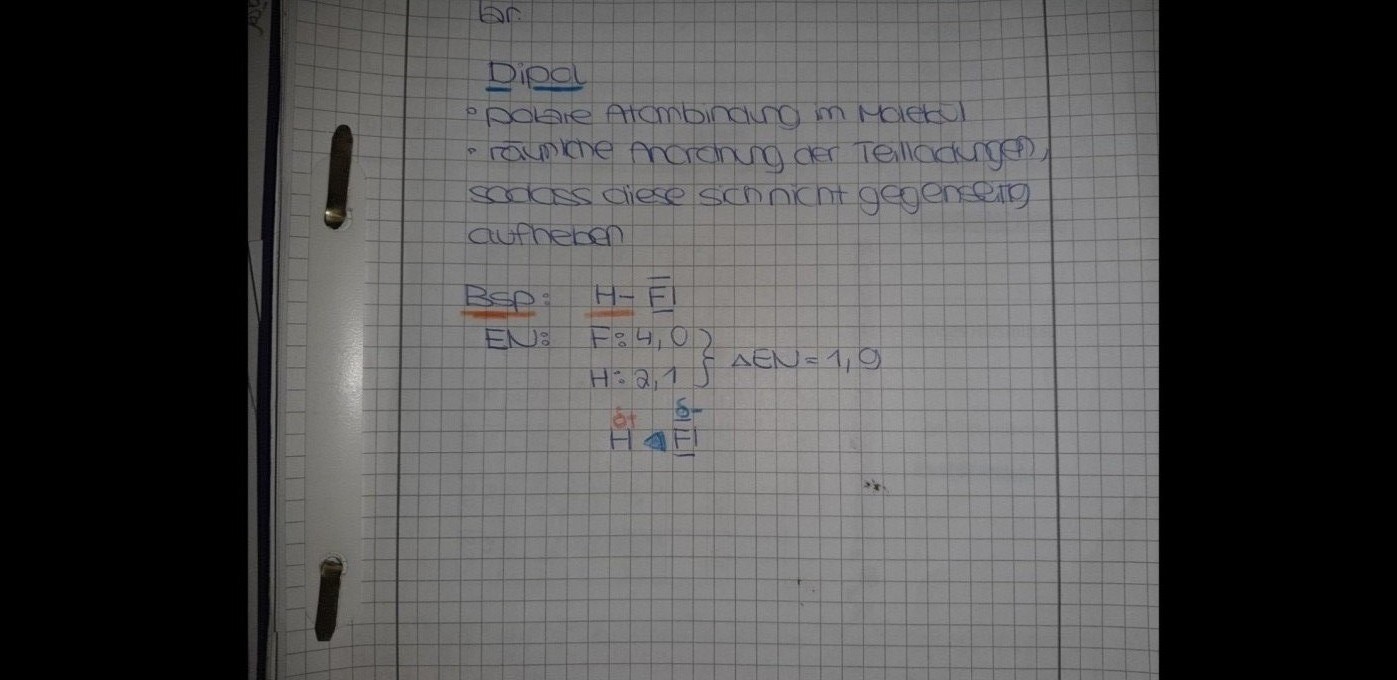 Br
Dipol
• polare Atombindung im Molekül
• räumliche Anordnung der Teilladungen,
sodass diese sich nicht gegenseitig
aufheben
Bsp: H – F|
EN: F: 4,0 } ΔEN = 1,9
H: 2,1
δ+ δ-
H ◄ F|